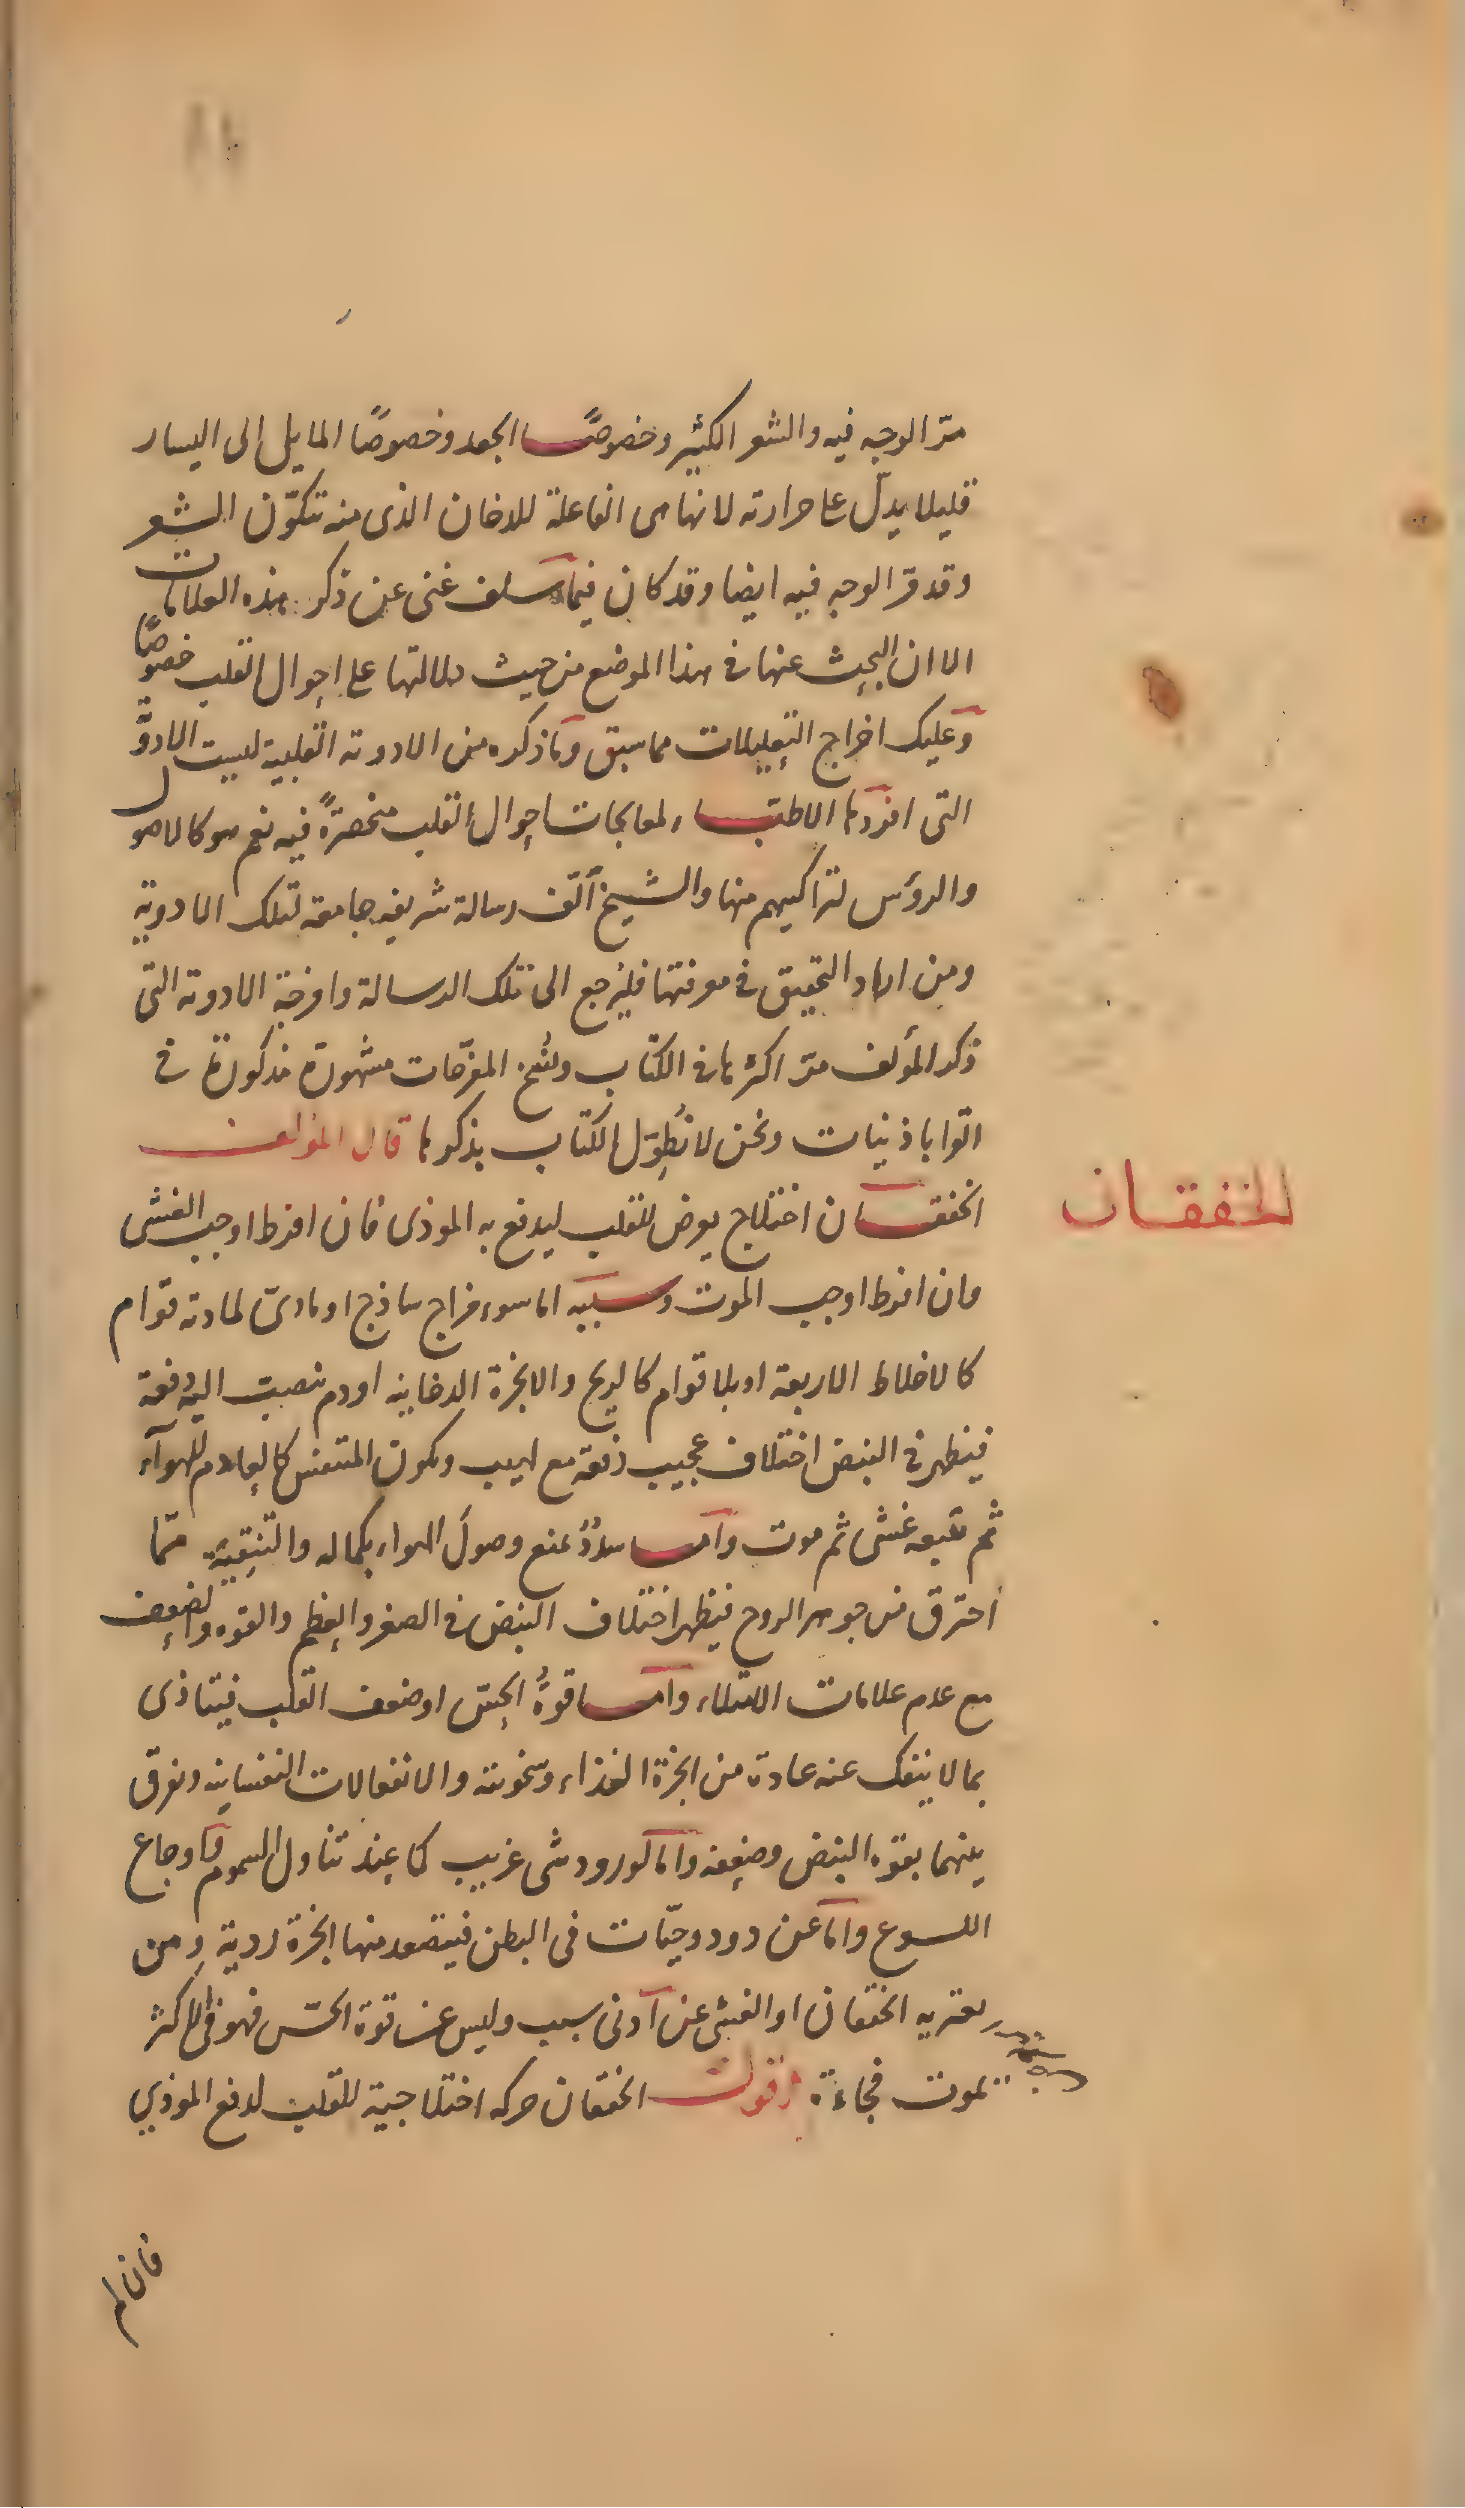 مرّ الوجه فيه والشعر الكثير وخصوصًا الجعد وخصوصًا المايل الى اليسار
قليلا يدلّ على حرارته لانها هى الفاعلة للدخان الذى منه تتكوّن الشعر
وقد مرّ الوجه فيه ايضا وقد كان فيما سلف غنى عن ذكر هذه العلامات
الا ان البحث عنها فى هذا الموضع من حيث دلالتها على احوال القلب خصوصًا
وعليك اخراج التعليلات مما سبق وما ذكره من الادوية القلبية ليست الادوية
التى افردها الاطباء لمعالجات احوال القلب منحصرةً فيه نعم هو كالاصول
والرؤس لتراكيبهم منها والشيخ ألّف رسالة شريفه جامعة لتلك الادوية
ومن اراد التحقيق فى معرفتها فليرجع الى تلك الرسالة وامزجة الادوية التى
ذكر المؤلف مرّ اكثرها فى الكتاب ونُسَخ المفرّحات مشهورة مذكورة فى
القراباذينات ونحن لا نُطِوّل الكتاب بذكرها قال المؤلف
الخفقان
الخفقان اختلاج يعرض للقلب ليدفع به الموذى فان افرط اوجب الغشى
فان افرط اوجب الموت وسببه اما سوء مزاج ساذج او مادىّ لمادته قوام
كالاخلاط الاربعة او بلا قوام كالريح والابخرة الدخانيه او دم ينصبّ اليه دفعة
فيظهر فى النبض اختلاف عجيب دفعة مع لهيب ويكون المتنفس كالعادم للهوآء
ثم يتبعه غشى ثم موت وامّا سددٌ تمنع وصولَ الهواء بكماله والتنقِيَة ممّا
احترق من جوهر الروح فيظهر اختلاف النبض فى الصغر والعظم والقوه والضعف
مع عدم علامات الامتلاء وامّا قوةُ الحِسّ او ضعف القلب فيتاذى
بما لا ينفك عنه عادة من ابخرة الغذاء وسخونته والانفعالات النفسانيه ونفرق
بينهما بقوه النبض وضعفه واما لورود شى غريب كما عند تناول السموم واوجاع
اللسوع واما عن دود وحيّات فى البطن فيتصعد منها ابخرة ردية ومن
يعتريه الخفقان او الغشى عن ادنى سبب وليس عن قوة الحسّ فهو فى الاكثر
يموت فجاءة اقول الخفقان حركه اختلاجية للقلب لدفع الموذي
فان لم